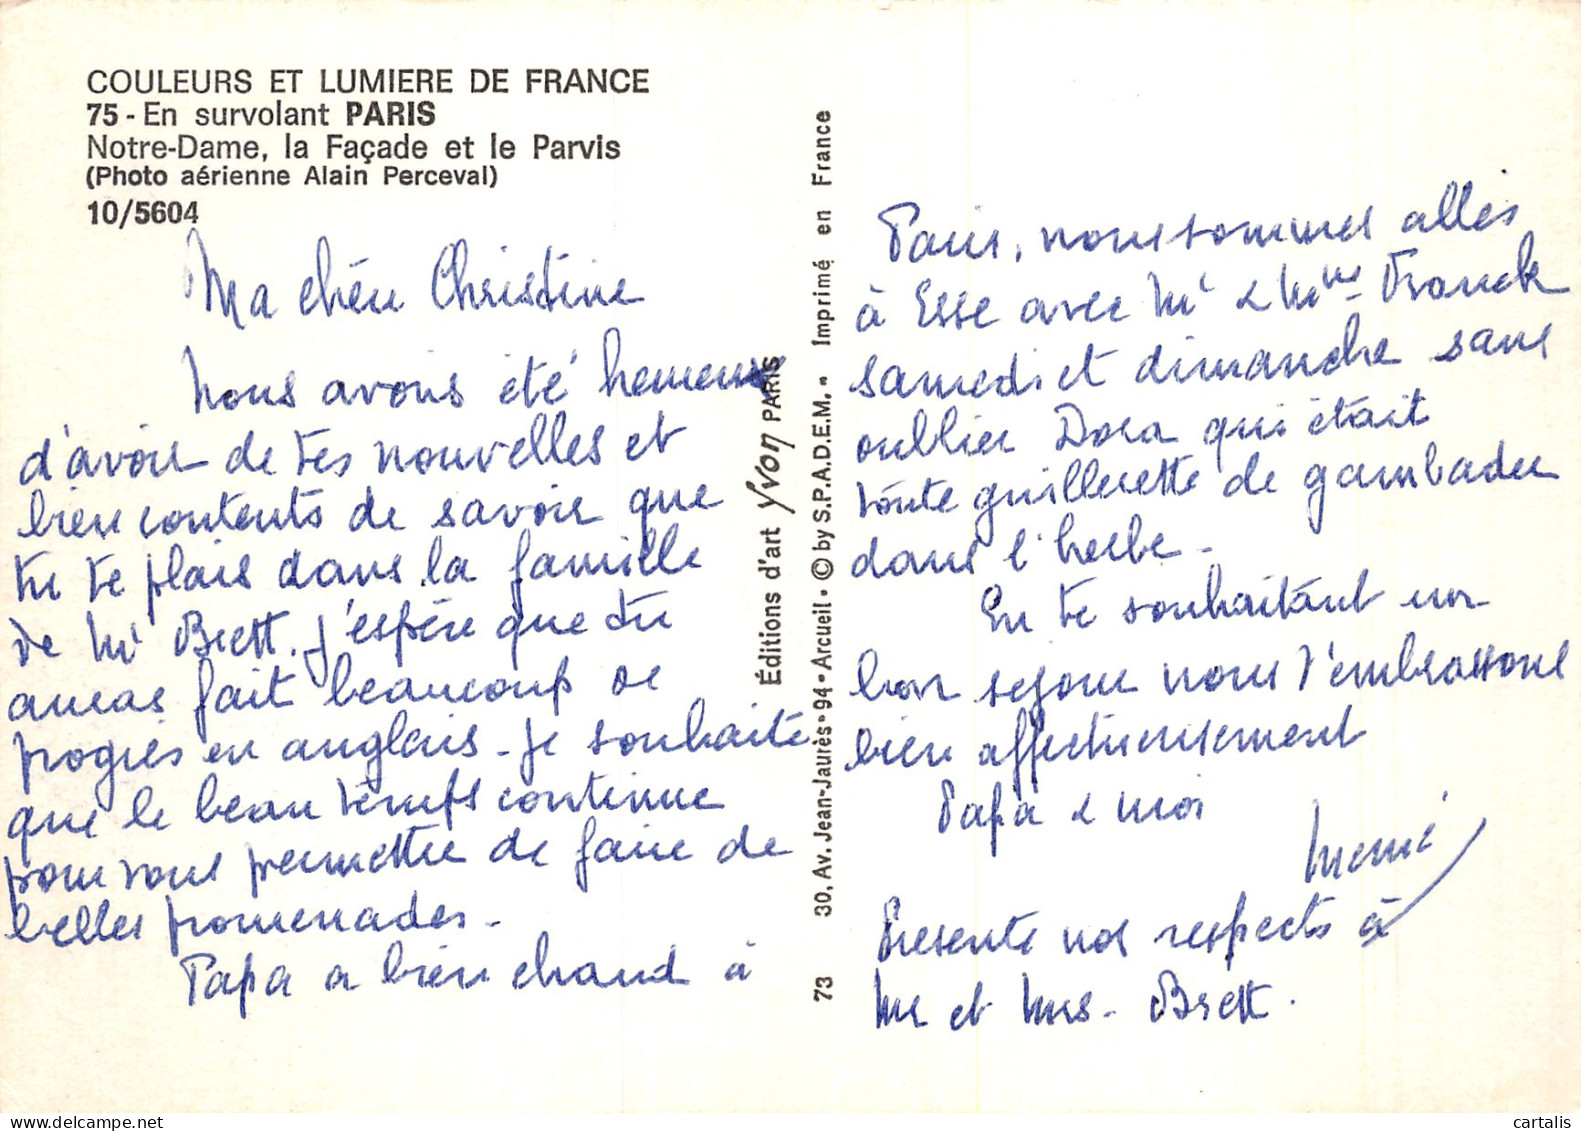 COULEURS ET LUMIERE DE FRANCE
75 - En survolant PARIS
Notre-Dame, la Façade et le Parvis
(Photo aérienne Alain Perceval)
10/5604
Ma chère Christine
Nous avons été heureux
d'avoir de tes nouvelles et
bien contents de savoir que
tu te plais dans la famille
de Mr Brett. J'espère que tu
auras fait beaucoup de
progrès en anglais. Je souhaite
que le beau temps continue
pour vous permettre de faire de
belles promenades.
Papa a bien chaud à
Éditions d'art Yvon PARIS
73 30, Av. Jean-Jaurès • 94 • Arcueil • © by S.P.A.D.E.M. • Imprimé en France
Paris, nous sommes allés
à Esse avec Mr & Mme Franck
samedi et dimanche sans
oublier Dora qui était
toute guillerette de gambader
dans l'herbe.
En te souhaitant un
bon séjour nous t'embrassons
bien affectueusement
Papa & moi
Mémé
Présente nos respects à
Mr et Mrs. Brett.
cartalis